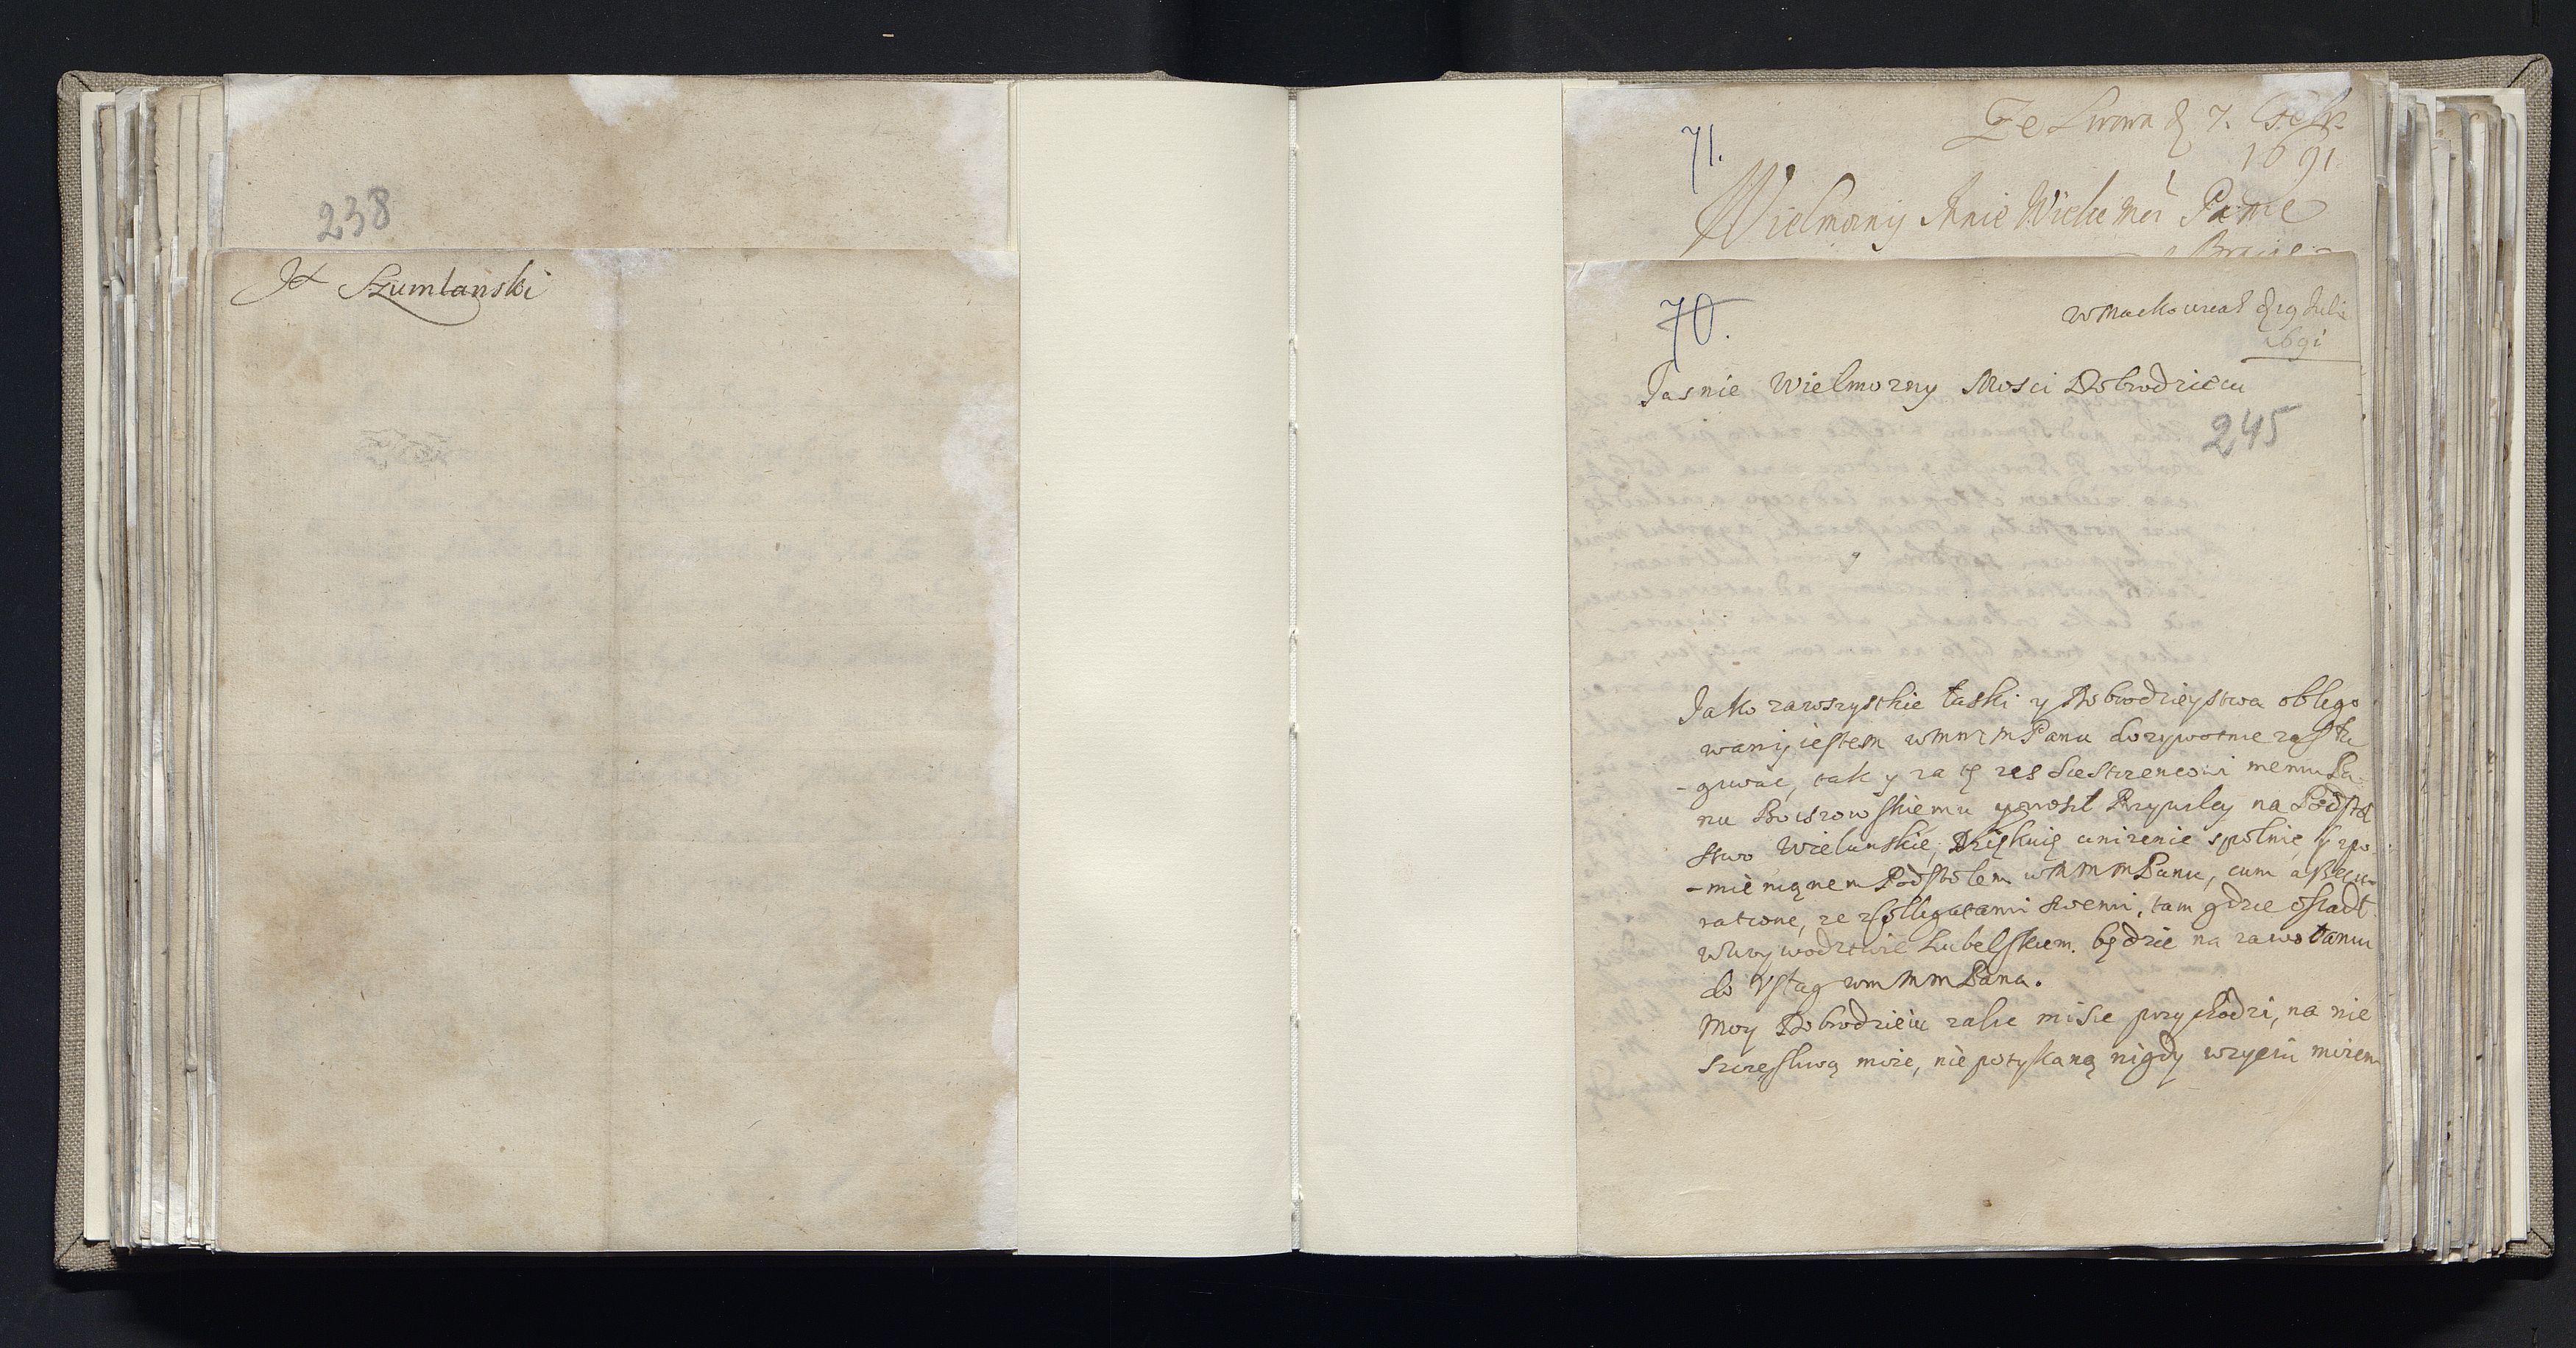 238
Jx Szumlanski
71.
Ze Lwowa d 7.
1691.
Wielmozny Mnie Wielce Mci Panie
70.
d 19 Julii
1691
Jasnie Wielmozny Mosci Dobrodzieiu
245
Jako zawszystkie łaski y Dobrodzieystwa oblego
wany iestem wmmmPanu dozywotnie zasłu
-giwac, tak y za tę zes Siestrzencowi memu Pa-
nu Przywiley na Podsto
stwo Wielunskie, Dziękuię unizenie spolnie
-mienięnem Podstolem wmmmPanu, cum assecu-
ratione, ze zCollegatami swemi, tam gdzie osiadł
wWoywodztwie Lubelskiem. będzie na zawołaniu
do Vsług wmmmPana.
Moy Dobrodzieiu zalic mi sie przychodzi, na nie
szczęsliwą moie, niepotyskaną nigdy wzyciu moiem